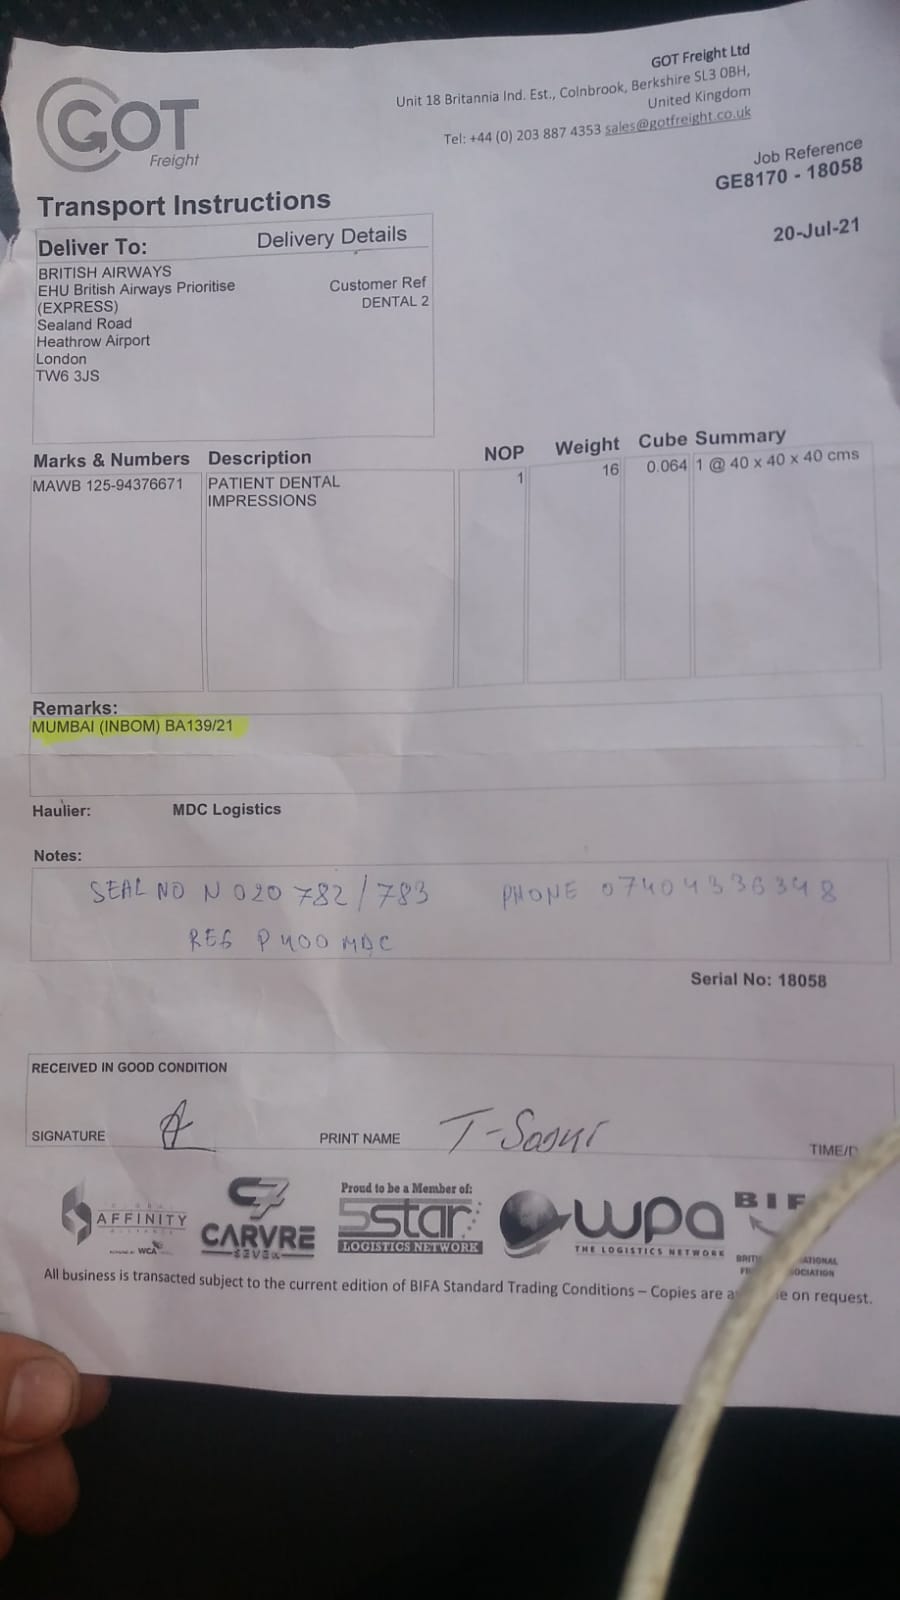 GOT
Freight
GOT Freight Ltd
Unit 18 Britannia Ind. Est., Colnbrook, Berkshire SL3 0BH,
United Kingdom
Tel: +44 (0) 203 887 4353 sales@gotfreight.co.uk
Job Reference
GE8170 - 18058
20-Jul-21
Transport Instructions
Deliver To: Delivery Details
BRITISH AIRWAYS
EHU British Airways Prioritise
(EXPRESS)
Sealand Road
Heathrow Airport
London
TW6 3JS
Customer Ref
DENTAL 2
Marks & Numbers Description NOP Weight Cube Summary
MAWB 125-94376671 PATIENT DENTAL 1 16 0.064 1 @ 40 x 40 x 40 cms
IMPRESSIONS
Remarks:
MUMBAI (INBOM) BA139/21
Haulier: MDC Logistics
Notes:
SEAL NO N 020 782/783 PHONE 07404336348
REG P400 MDC
Serial No: 18058
RECEIVED IN GOOD CONDITION
SIGNATURE PRINT NAME TIME/D
AFFINITY
WCA
CARVRE
SEVEN
Proud to be a Member of:
5star
LOGISTICS NETWORK
wpa
THE LOGISTICS NETWORK
BIF
All business is transacted subject to the current edition of BIFA Standard Trading Conditions – Copies are on request.